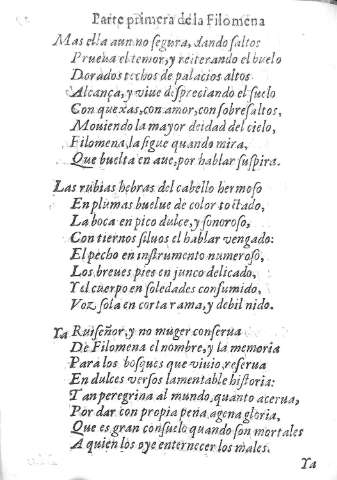 Parte primera de la Filomena
Mas ella aun no segura, dando saltos
Prueua el temor, y reiterando el buelo
Dorados techos de palacios altos
Alcança, y viue despreciando el suelo
Con quexas, con amor, con sobresaltos,
Mouiendo la mayor deidad del cielo,
Filomena, la sigue quando mira,
Que buelta en aue, por hablar suspira.
Las rubias hebras del cabello hermoso
En plumas buelue de color tostado,
La boca en pico dulce, y sonoroso,
Con tiernos siluos el hablar vengado:
El pecho en instrumento numeroso,
Los breues pies en junco delicado,
Y el cuerpo en soledades consumido,
Voz sola en corta rama, y debil nido.
Ya Ruiseñor, y no muger conserua
De Filomena el nombre, y la memoria
Para los bosques que viuio, reserua
En dulces versos lamentable historia:
Tan peregrina al mundo, quanto acerua,
Por dar con propia pena, agena gloria,
Que es gran consuelo quando son mortales
A quien los oye enternecer los males.
Ya